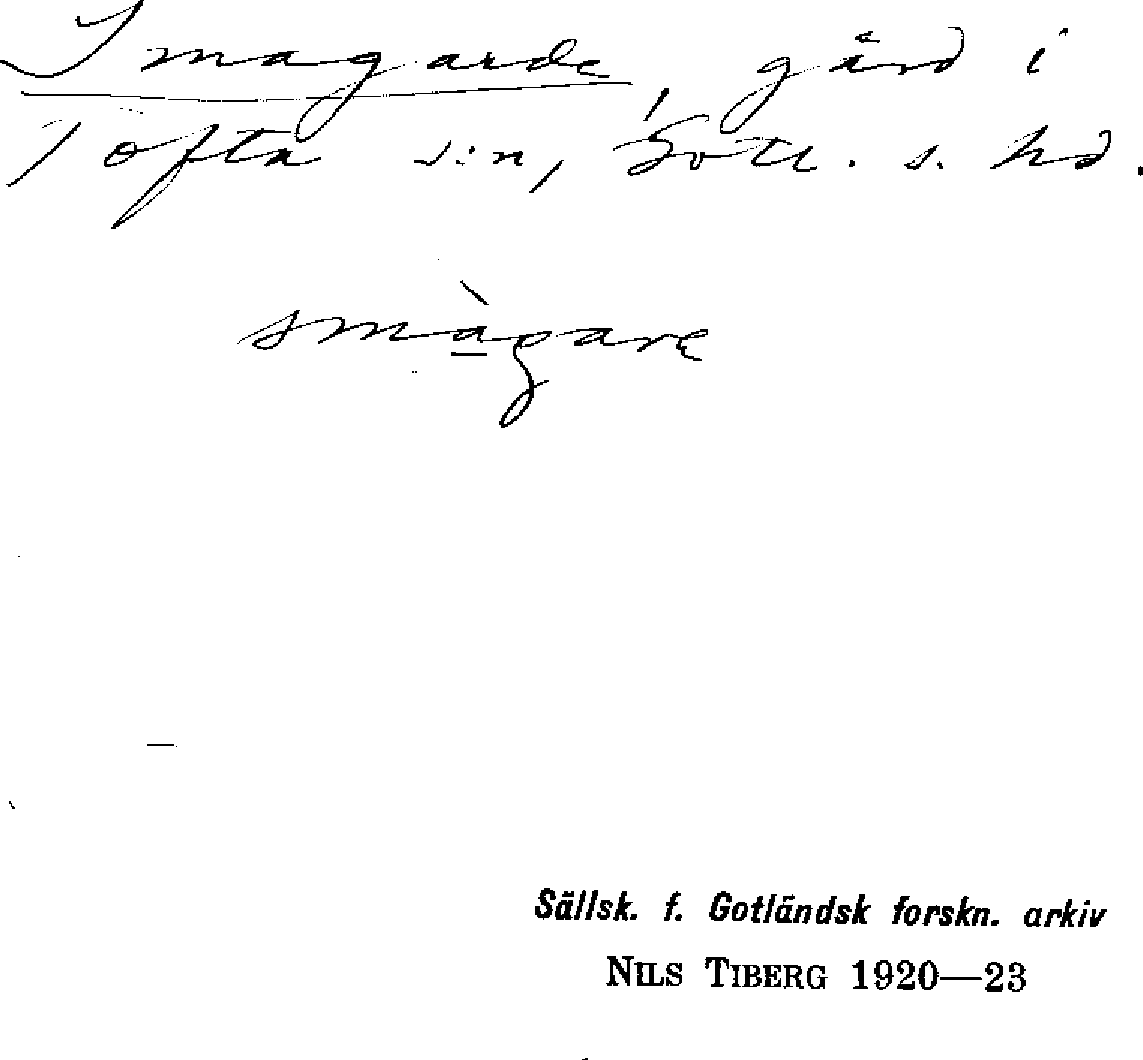 Smagarde, gård i
Tofta s:n, Gotl. s. hd.
smàgare
Sällsk. f. Gotländsk forskn. arkiv
NILS TIBERG 1920—23